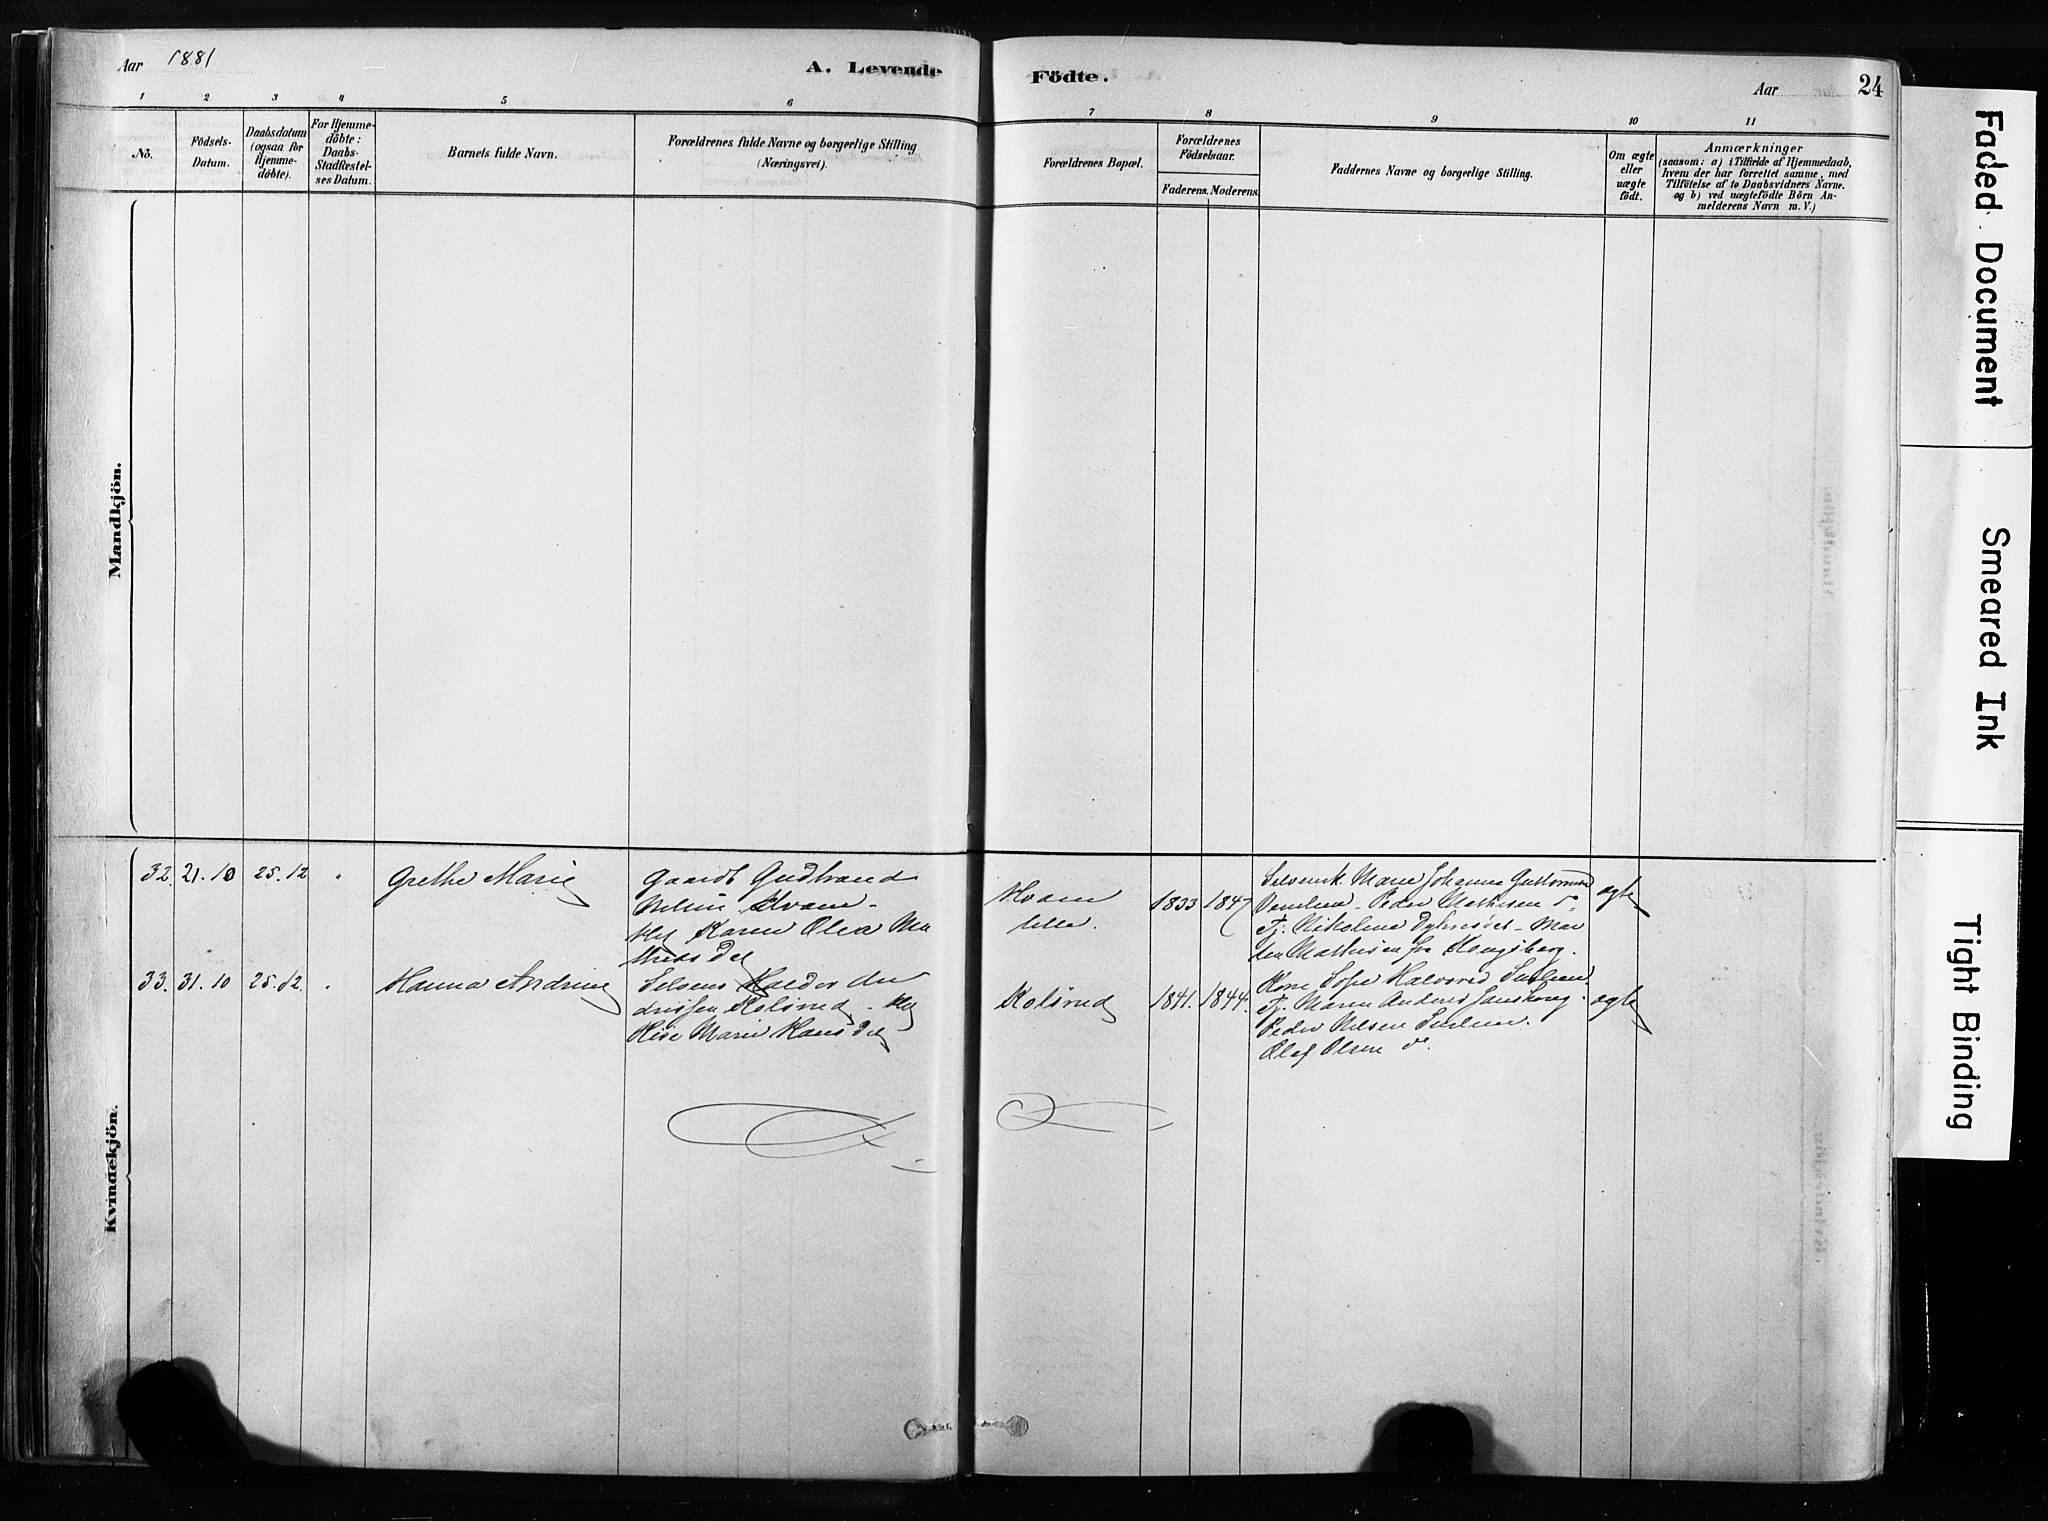 Aar 1881
A. Levende Födte.
Aar
24
1
2
3
4
5
6
7
8
9
10
11
No.
Födsels-
Datum.
Daabsdatum
(ogsaa for
Hjemme-
döbte).
For Hjemme-
döbte:
Daabs-
Stadfæstel-
ses Datum.
Barnets fulde Navn.
Forældrenes fulde Navne og borgerlige Stilling
(Næringsvei).
Forældrenes Bopæl.
Forældrenes
Födselsaar.
Faderens. Moderens.
Faddernes Navne og borgerlige Stilling.
Om ægte
eller
uægte
födt.
Anmærkninger
(saasom: a) i Tilfælde af Hjemmedaab,
hvem der har forrettet samme, med
Tilföielse af to Daabsvidners Navne.
og b) ved uægtefödte Börn An-
melderens Navn m. V.)
Mandkjön.
Kvindekjön.
32. 21.10 25.12
Grethe Marie
Gaardb Gudbrand
Nielsen Hvam
Karen Olea Ma
thisd
Hvam
lille.
1833 1847
Marie Johanne
Peder Mathisen do
Tj. Nikoline
Mathisen fra Kongsberg.
ægte
33. 31.10 25.12.
Hanna Andrine
Selveier Halvor An
drissen Kolsrud
Marie Hansdt
Kolsrud
1841. 1844.
Kone Sofie Halvorsd
Tj. Maren Andersd
Peder Nilsen
Olaf Olsen do.
ægte
Faded Document
Smeared Ink
Tight Binding